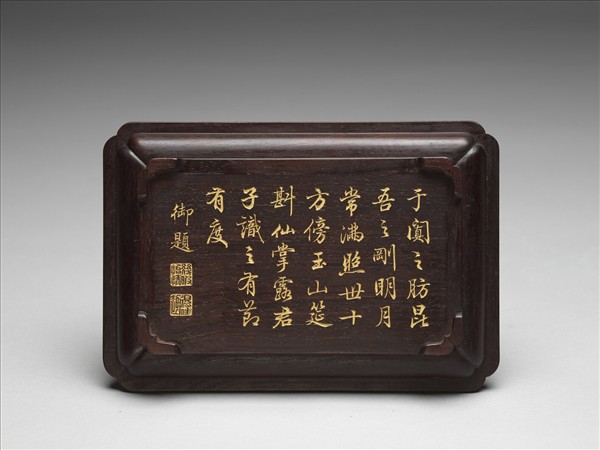 于闐之肪昆
吾之剛明月
常滿照世十
方傍玉山筵
斟仙掌露君
子識之有節
有度
御題